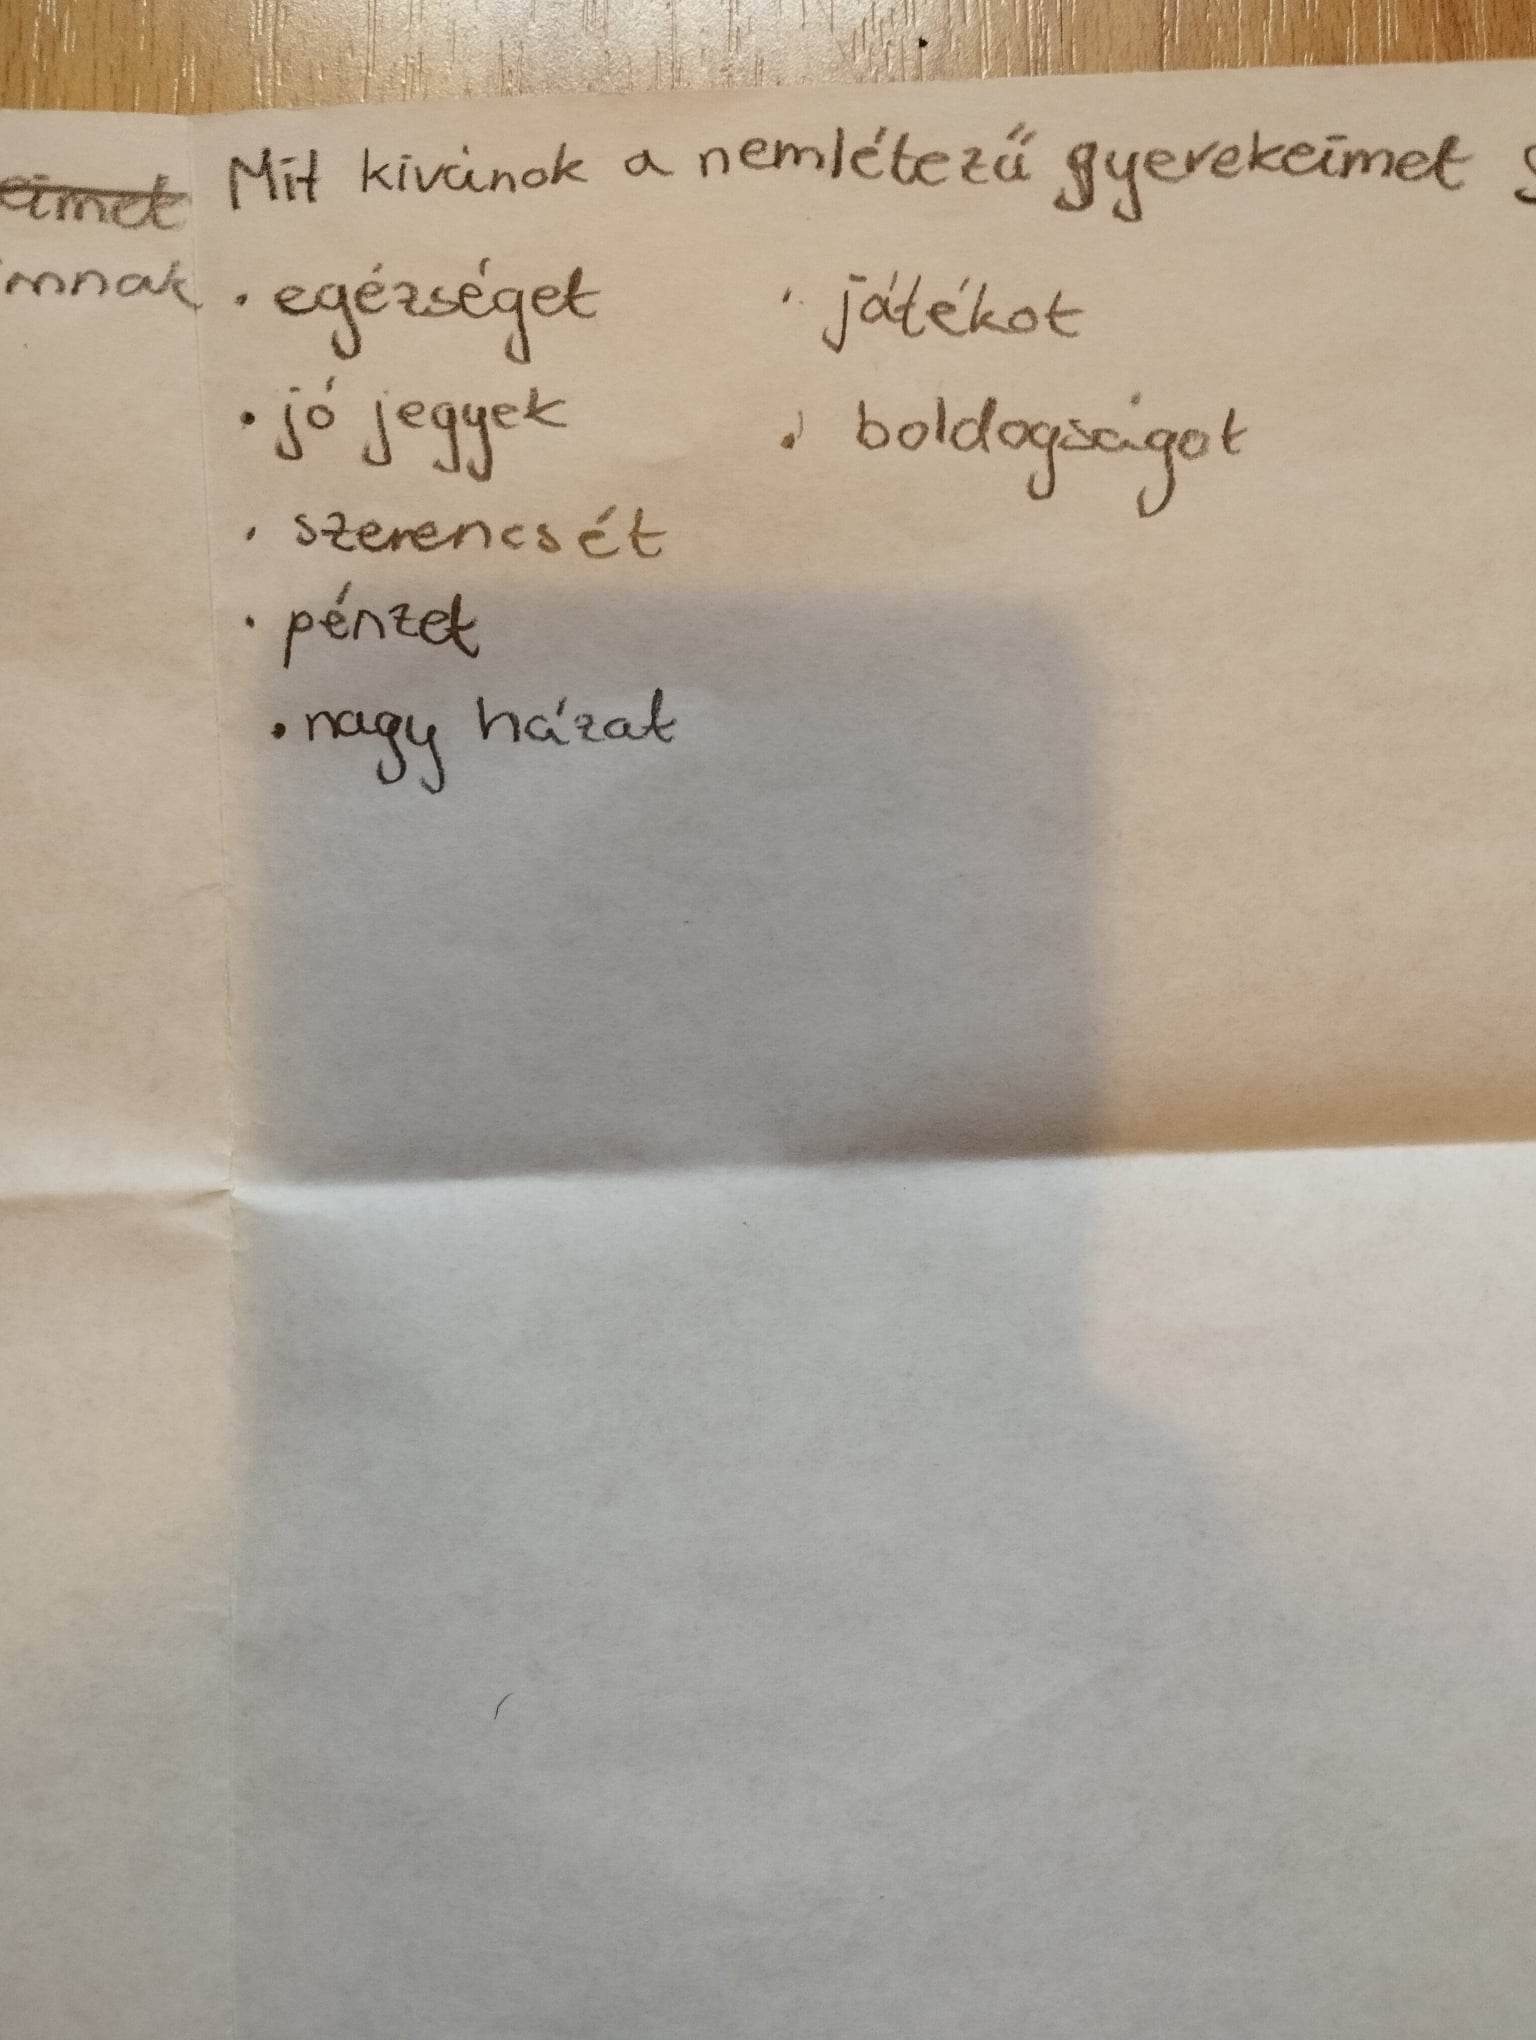 Mit kivánok a nemlétezű gyerekeimet
eimet
imnak
• egézséget
• jó jegyek
• szerencsét
• pénzet
• nagy házat
• játékot
• boldogságot